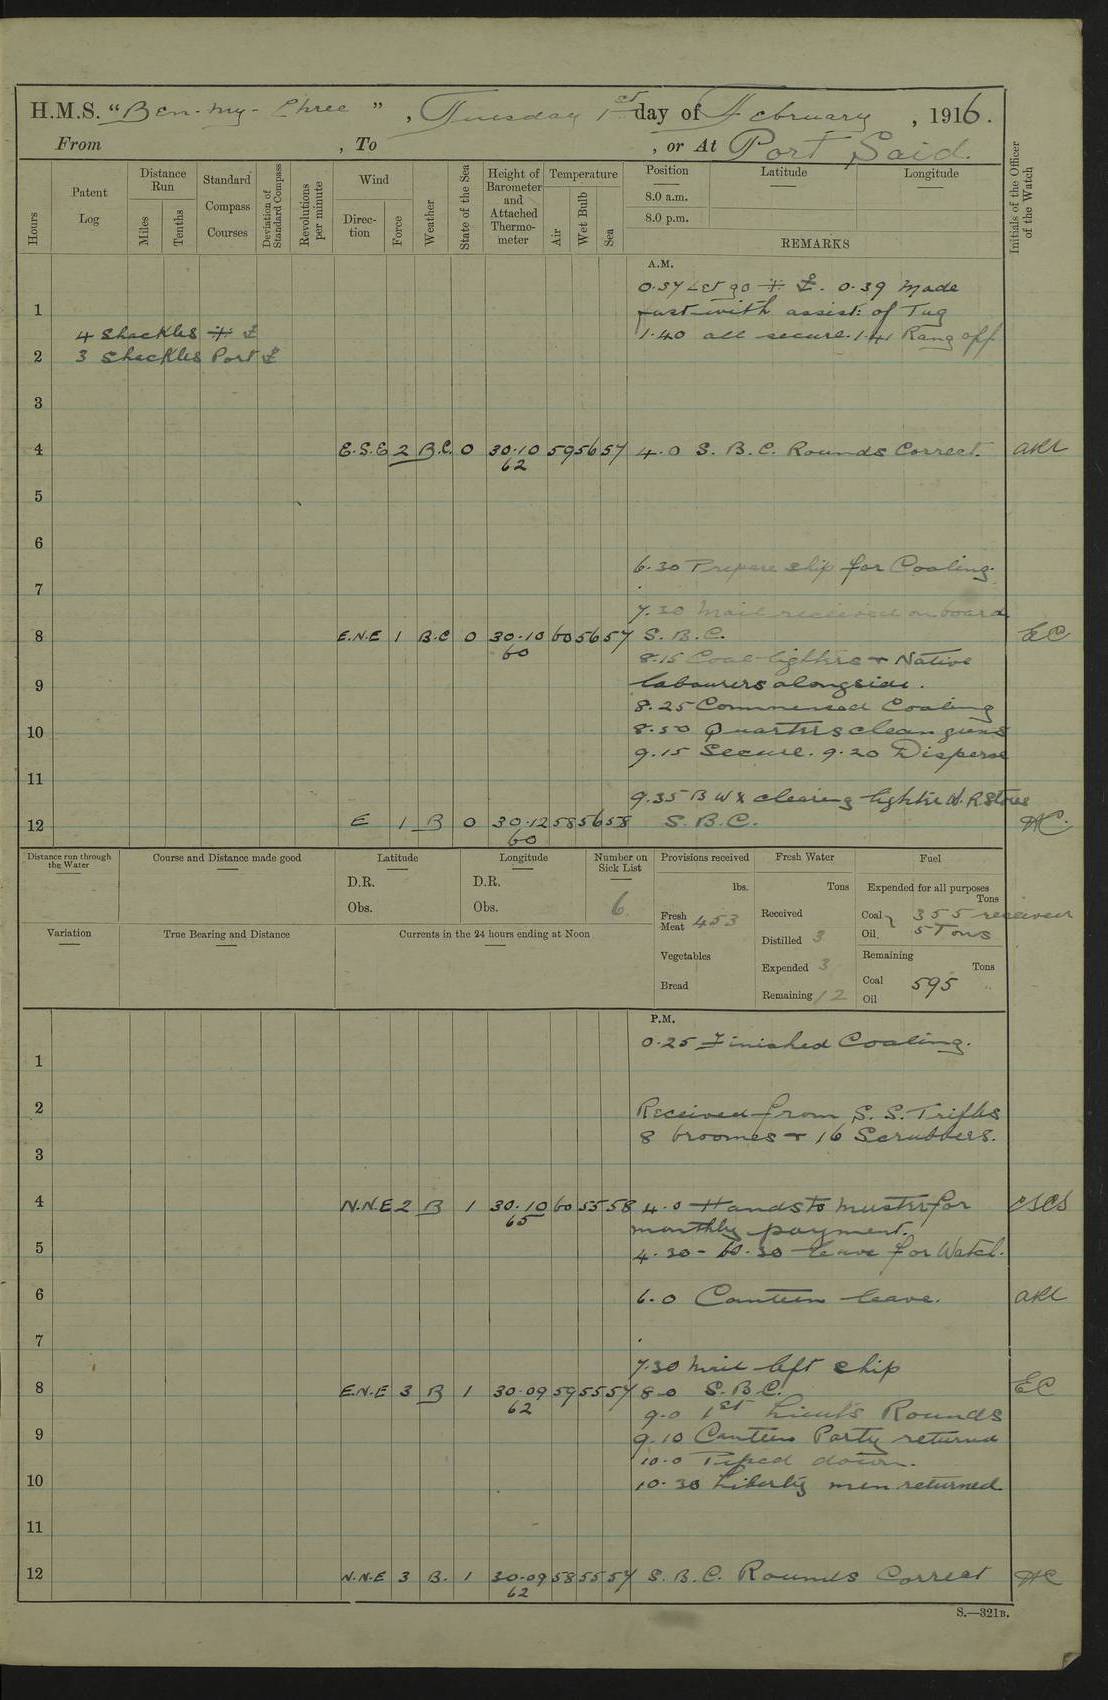 H.M.S. "Ben-my-Chree", Tuesday 1st day of February, 1916.
From , To , or At Port Said.
Hours
Patent Log
Distance Run
Miles
Tenths
Standard Compass Courses
Deviation of Standard Compass
Revolutions per minute
Wind
Direction
Force
Weather
State of the Sea
Height of Barometer and Attached Thermometer
Temperature
Air
Wet Bulb
Sea
Position
Latitude
Longitude
8.0 a.m.
8.0 p.m.
REMARKS
Initials of the Officer of the Watch
A.M.
0.37 Let go 0.39 Made
fast with assist: of Tug
1
4 Shackles
1.40 all secure. 1.41 Rang off
2 3 Shackles Port
3
4 E.S.E 2 B.C. 0 30.10 59 56 57 4.0 S. B. C. Rounds Correct.
62
5
6
6.30 Prepare ship for Coaling.
7
7.30 Mail received on board
8 E.N.E 1 B.C 0 30.10 60 56 57 S. B. C. EC
60
8.15 Coal lighters + Native
9 labourers alongside.
8.25 Commenced Coaling
10 8.50 Quarters clean guns
9.15 Secure. 9.20 Disperse
11
9.35 B W X clearing lighter W. R Stores
12 E 1 B 0 30.12 58 56 58 S. B. C.
60
Distance run through the Water
Course and Distance made good
Latitude
D.R.
Obs.
Longitude
D.R.
Obs.
Number on Sick List
6
Provisions received
lbs.
Fresh Meat 453
Vegetables
Bread
Fresh Water
Tons
Received
Distilled 3
Expended 3
Remaining 12
Fuel
Expended for all purposes
Tons
Coal 355 received
Oil. 5 Tons
Remaining
Tons
Coal 595 "
Oil
Variation
True Bearing and Distance
Currents in the 24 hours ending at Noon
P.M.
0.25 Finished Coaling.
1
2 Received from S. S.
8 broomes + 16 Scrubbers.
3
4 N.N.E 2 B 1 30.10 60 55 58 4.0 Hands to muster for
65
monthly payment.
5 4.30 - 10.30 leave for Watch.
6 6.0 Canteen leave.
7
7.30 Mail left ship
8 E.N.E 3 B 1 30.09 59 55 57 8.0 S. B. C. EC
62
9.0 1st Lieut's Rounds
9 9.10 Canteen Party returned
10.0 Piped down.
10 10.30 Liberty men returned.
11
12 N.N.E 3 B. 1 30.09 58 55 57 S. B. C. Rounds Correct
62
S.—321B.